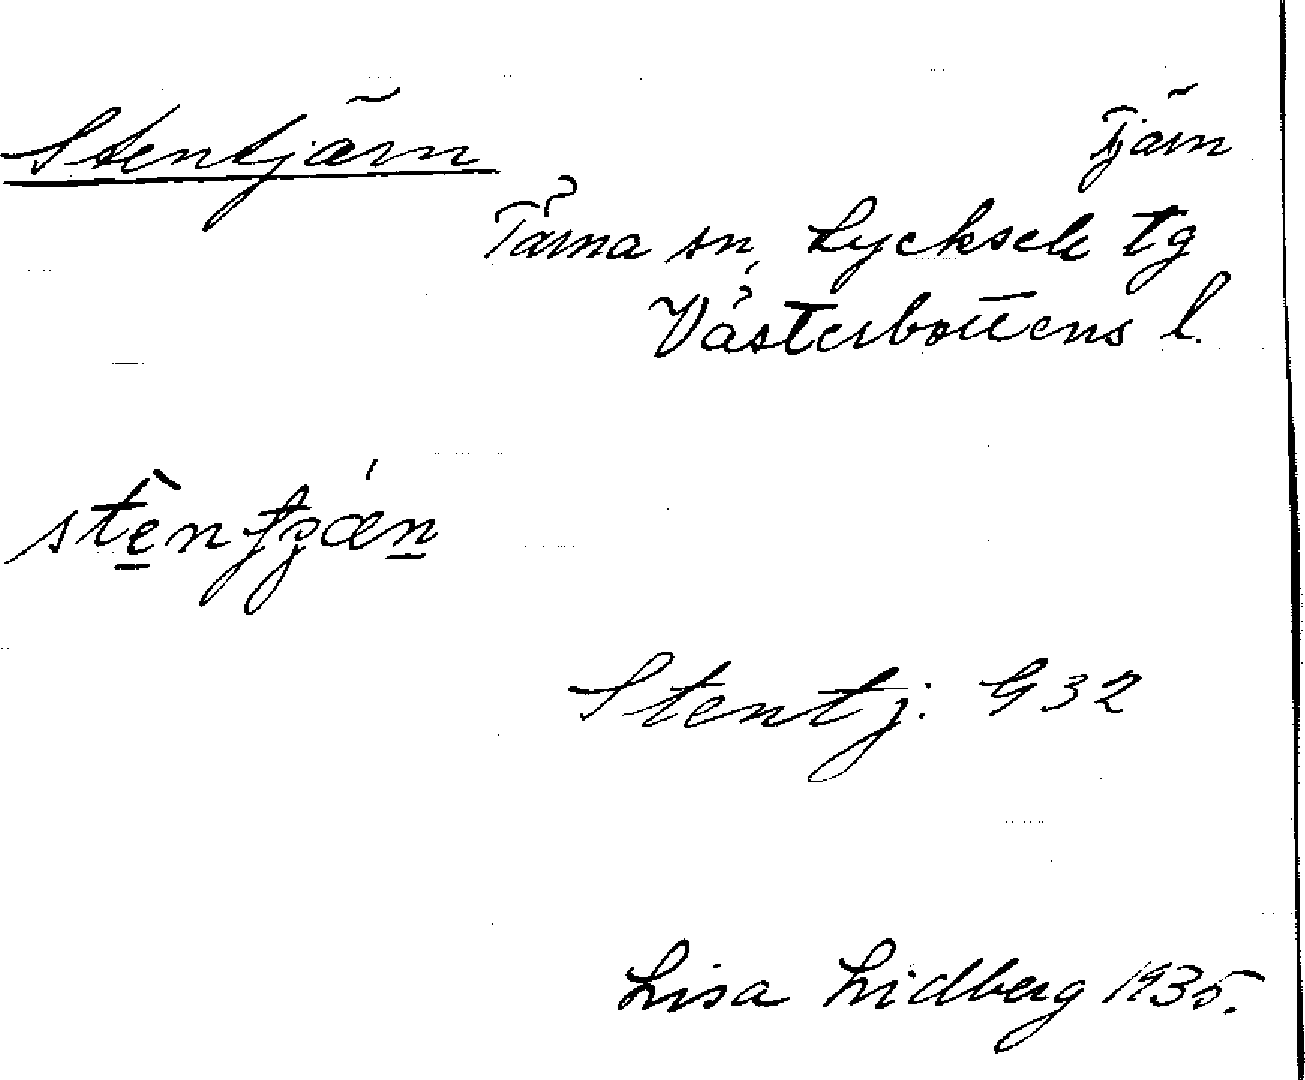 Stentjärn
Tjärn
Tärna sn, Lycksele tg
Västerbottens l.
Stentj. G32
Lisa Lidberg 1935.